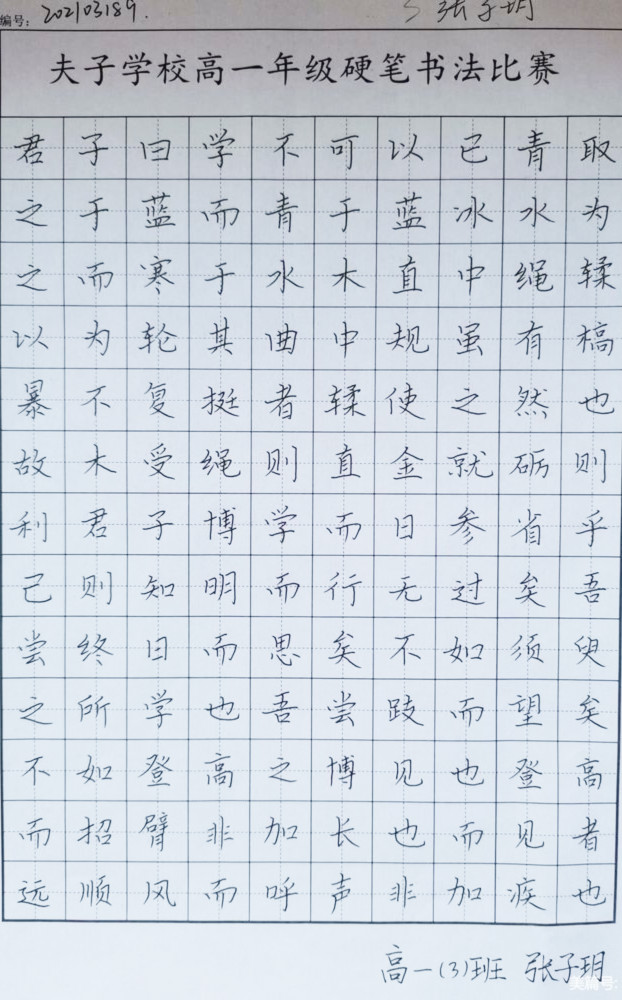 编号: 202103189.
张子玥
夫子学校高一年级硬笔书法比赛
君子曰学不可以已青取
之于蓝而青于蓝冰水为
之而寒于水木直中绳鞣
以为轮其曲中规虽有槁
暴不复挺者鞣使之然也
故木受绳则直金就砺则
利君子博学而日参省乎
己则知明而行无过矣吾
尝终日而思矣不如须臾
之所学也吾尝跂而望矣
不如登高之博见也登高
而招臂非加长也而见者
远顺风而呼声非加疾也
高一(3)班 张子玥
美编号: